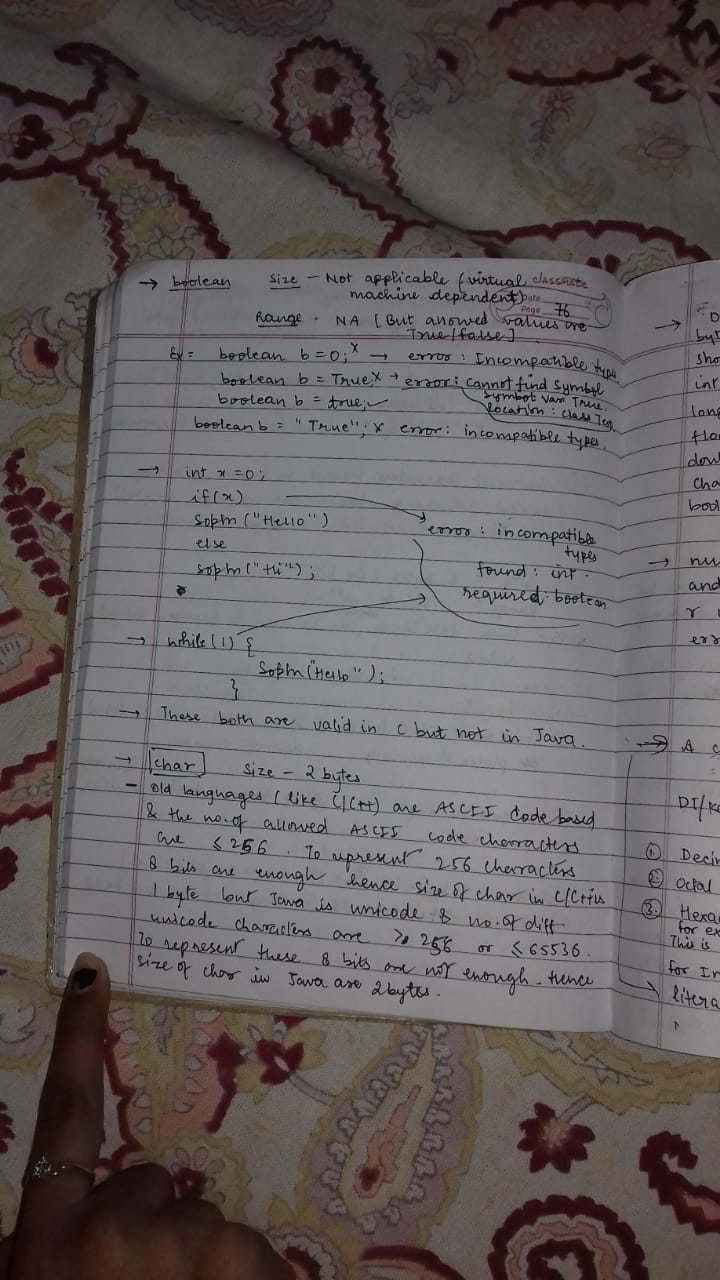 → boolean Size - Not applicable (virtual
classmate
machine dependent)
Date
Page 76
Range . NA [But allowed values are
True/false]
Ex = boolean b=0; x → error : Incompatible types
boolean b = True; x → error : cannot find symbol
symbol var True.
boolean b = true; ✓
location : class Test
boolean b = "True"; x error : incompatible types.
→ int x = 0;
if(x)
Sopln ("Hello")
error : incompatible
types
else
found : int .
sopln ("Hi");
required : boolean
→ while (1) {
Sopln("Hello");
}
→ These both are valid in C but not in Java.
→ char Size - 2 bytes
- Old languages (like C/C++) are ASCII Code based
& the no. of allowed ASCII code charracters
are ≤ 256 . To represent 256 charracters
8 bits are enough hence size of char in C/C++ is
1 byte but Java is unicode & no. of diff
unicode characters are > 256 or ≤ 65536 .
To represent these 8 bits are not enough . Hence
size of char in Java are 2 bytes .
→
by
sho
int
long
flo
dou
cha
bool
→ nu
and
r
err
→ A c
DI/
① Decin
② Octal
③ Hexa
for ex
This is
for In
litera